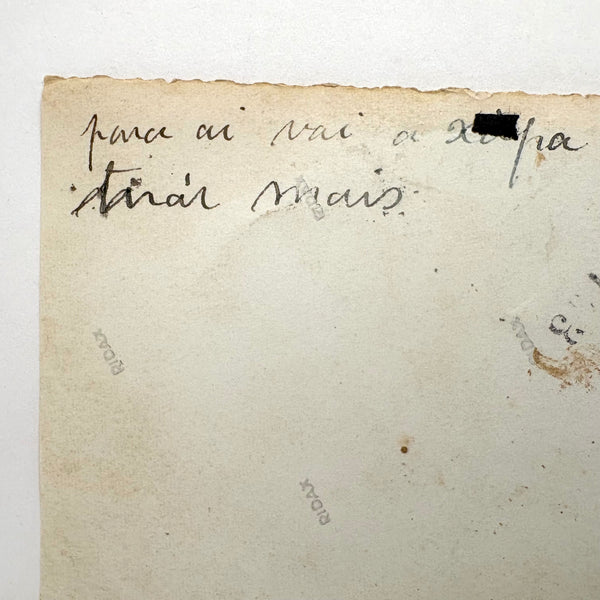 para ai vai a
tirár mais
RIDAX
RIDAX
RIDAX
RIDAX